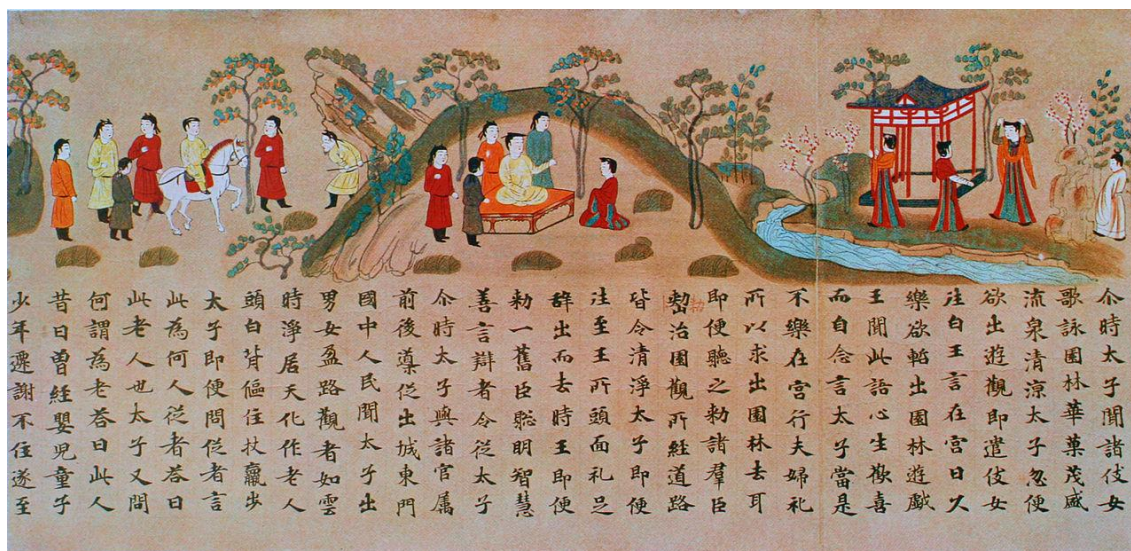 尒時太子聞諸伎女
歌詠園林華菓茂盛
流泉清涼太子忽便
欲出遊觀即遣伎女
往白王言在宮日久
樂欲暫出園林遊戲
王聞此語心生歡喜
而自念言太子當是
不樂在宮行夫婦礼
所以求出園林去耳
即便聽之勑諸羣臣
勑治園觀所經道路
皆令清淨太子即便
往至王所頭面礼足
辞出而去時王即便
勑一舊臣聡明智慧
善言辯者令從太子
尒時太子與諸官属
前後導從出城東門
國中人民聞太子出
男女盈路觀者如雲
時淨居天化作老人
頭白背傴住杖羸步
太子即便問從者言
此為何人從者荅曰
此老人也太子又問
何謂為老荅曰此人
昔日曽經嬰児童子
少年遷謝不住遂至